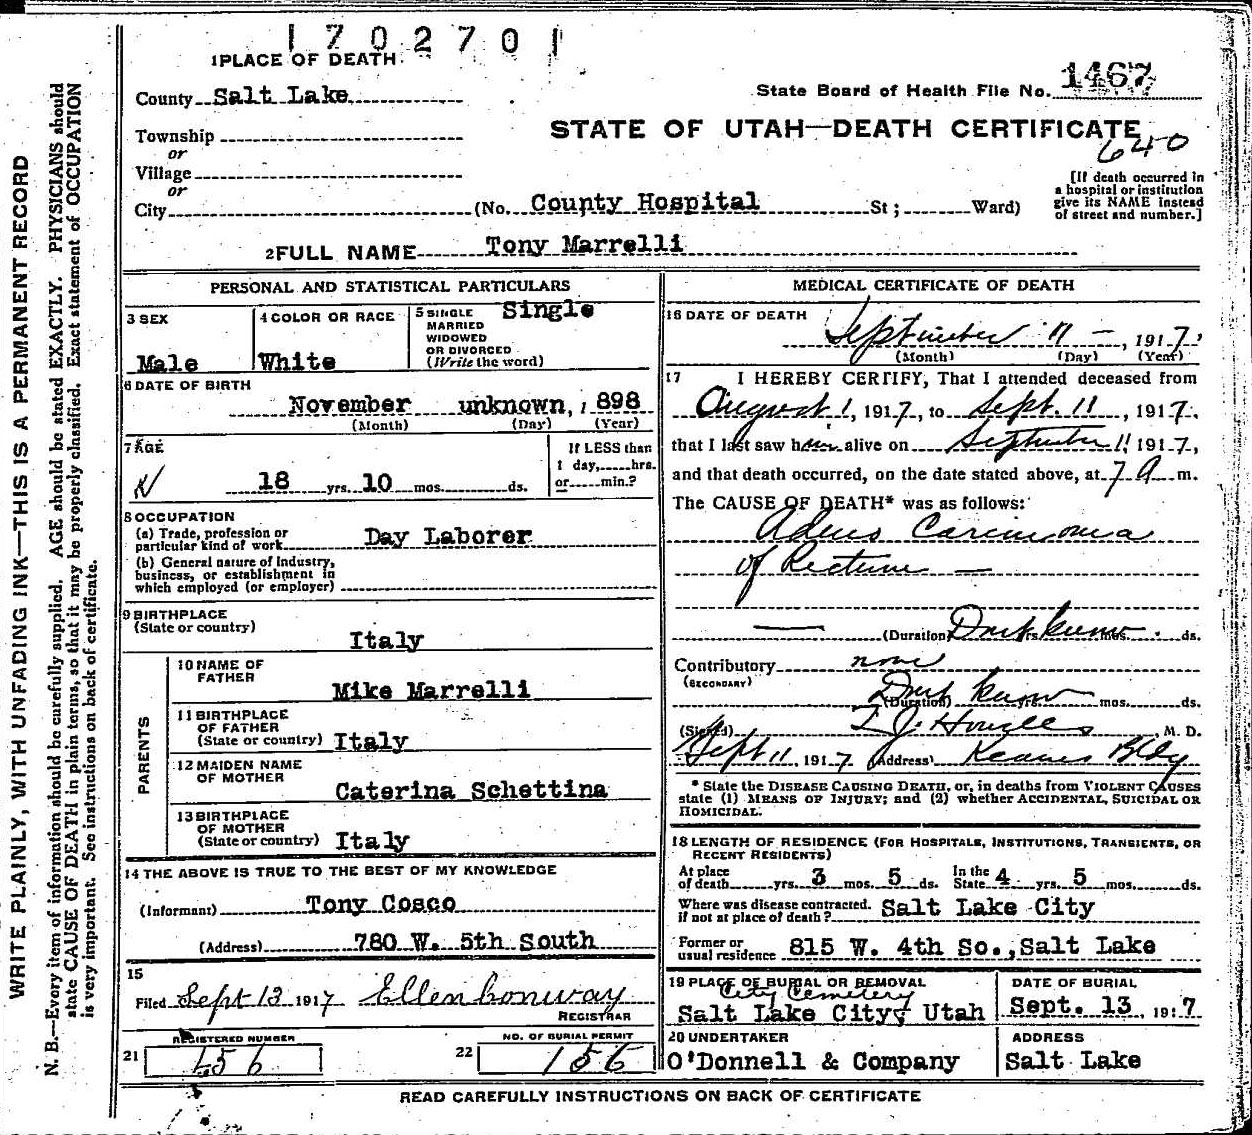 1702701
1 PLACE OF DEATH.
County Salt Lake
State Board of Health File No. 1467
Township
or
STATE OF UTAH—DEATH CERTIFICATE
640
Village
or
City (No. County Hospital St; Ward)
[If death occurred in
a hospital or institution
give its NAME instead
of street and number.]
2 FULL NAME Tony Marrelli
PERSONAL AND STATISTICAL PARTICULARS
3 SEX
Male
4 COLOR OR RACE
White
5 SINGLE
MARRIED
WIDOWED
OR DIVORCED
(Write the word)
Single
6 DATE OF BIRTH
November unknown, 1898
(Month) (Day) (Year)
7 AGE
18 yrs. 10 mos. ds.
If LESS than
1 day, hrs.
or min.?
8 OCCUPATION
(a) Trade, profession or
particular kind of work Day Laborer
(b) General nature of Industry,
business, or establishment in
which employed (or employer)
9 BIRTHPLACE
(State or country)
Italy
PARENTS
10 NAME OF
FATHER
Mike Marrelli
11 BIRTHPLACE
OF FATHER
(State or country) Italy
12 MAIDEN NAME
OF MOTHER
Caterina Schettina
13 BIRTHPLACE
OF MOTHER
(State or country) Italy
14 THE ABOVE IS TRUE TO THE BEST OF MY KNOWLEDGE
(Informant) Tony Cosco
(Address) 780 W. 5th South
15
Filed Sept 13 1917 Ellen Conway
REGISTRAR
REGISTERED NUMBER
21 456
NO. OF BURIAL PERMIT
22 156
MEDICAL CERTIFICATE OF DEATH
16 DATE OF DEATH
September 11 — , 1917,
(Month) (Day) (Year)
17 I HEREBY CERTIFY, That I attended deceased from
August 1, 1917, to Sept. 11, 1917,
that I last saw him alive on September 11 1917,
and that death occurred, on the date stated above, at 7 a m.
The CAUSE OF DEATH* was as follows:
Adeno Carcinoma
of Rectum —
(Duration) Dont know mos. ds.
Contributory none
(SECONDARY)
Dont know
(Duration) yrs. mos. ds.
(Signed) T J. Howells M. D.
Sept 11, 1917 (Address) Kearns Bldg
* State the DISEASE CAUSING DEATH, or, in deaths from VIOLENT CAUSES
state (1) MEANS OF INJURY; and (2) whether ACCIDENTAL, SUICIDAL OR
HOMICIDAL.
18 LENGTH OF RESIDENCE (FOR HOSPITALS, INSTITUTIONS, TRANSIENTS, OR
RECENT RESIDENTS)
At place
of death yrs. 3 mos. 5 ds. In the State 4 yrs. 5 mos. ds.
Where was disease contracted.
if not at place of death? Salt Lake City
Former or
usual residence 815 W. 4th So., Salt Lake
19 PLACE OF BURIAL OR REMOVAL
City Cemetery
Salt Lake City, Utah
DATE OF BURIAL
Sept. 13, 1917
20 UNDERTAKER
O'Donnell & Company
ADDRESS
Salt Lake
READ CAREFULLY INSTRUCTIONS ON BACK OF CERTIFICATE
WRITE PLAINLY, WITH UNFADING INK—THIS IS A PERMANENT RECORD
N. B.—Every item of information should be carefully supplied. AGE should be stated EXACTLY. PHYSICIANS should
state CAUSE OF DEATH in plain terms, so that it may be properly classified. Exact statement of OCCUPATION
is very important. See instructions on back of certificate.